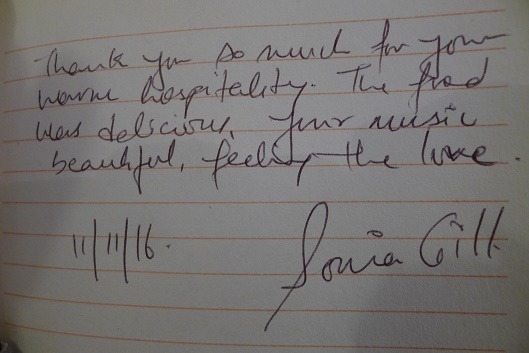 Thank you so much for your
warm hospitality. The food
was delscious, your music
beautiful, feeling the love.
11/11/16.
Sonia Gill